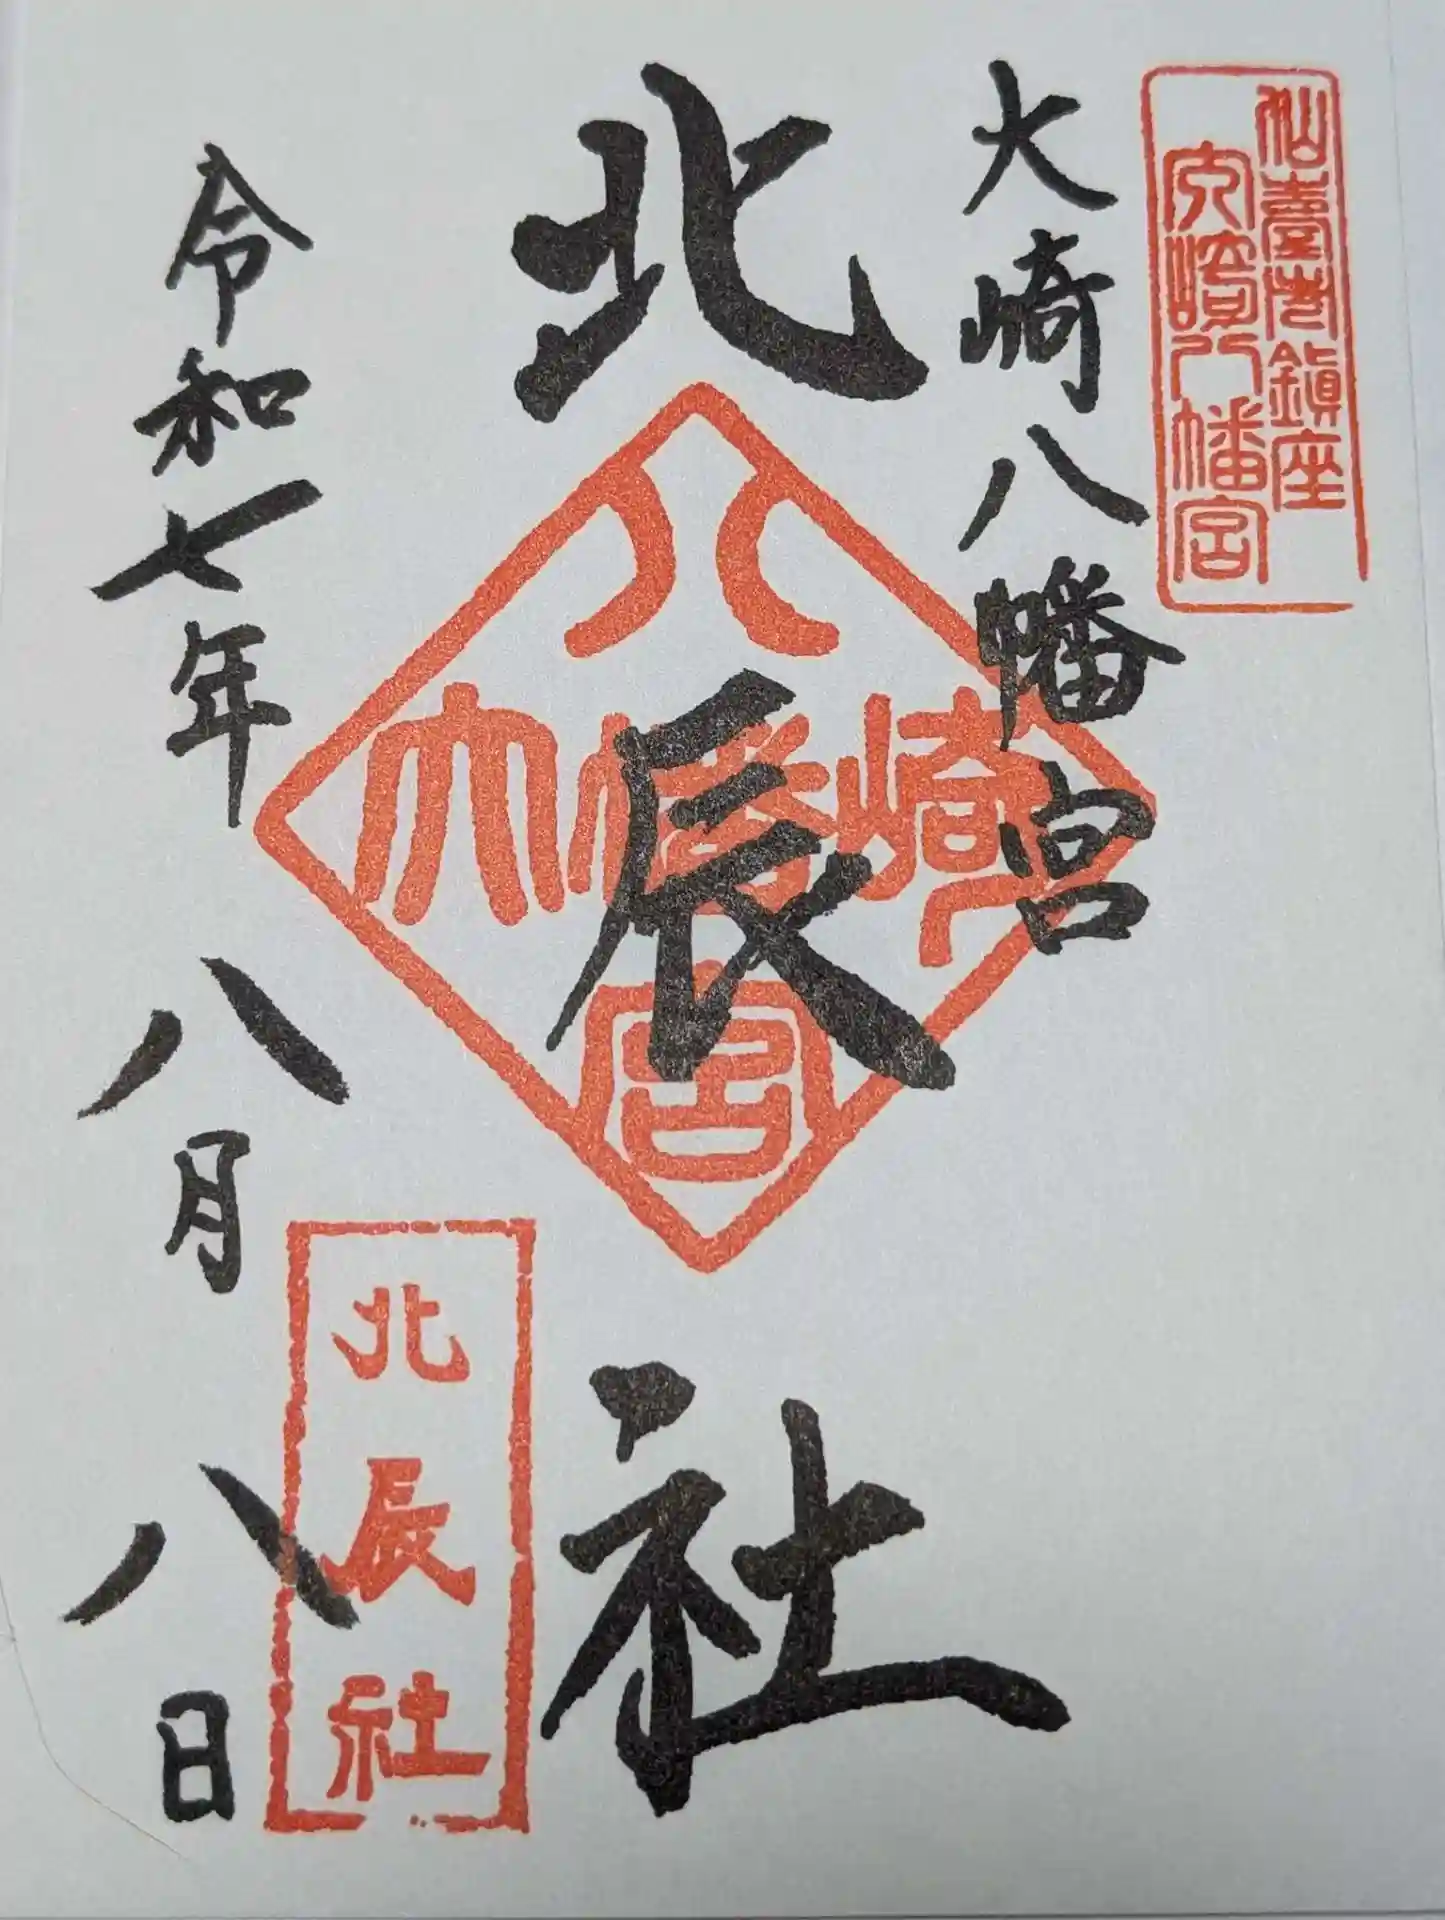 仙臺市鎮座
大崎八幡宮
大崎八幡宮
北辰社
八
大幡崎
宮
北辰社
令和七年八月八日